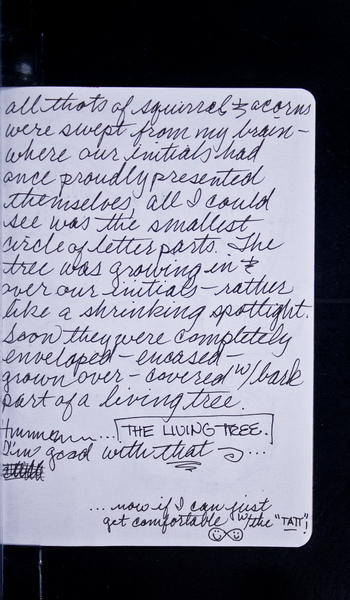 all thots of squirrels & acorns
were swept from my brain –
where our initials had
once proudly presented
themselves, all I could
see was the smallest
circle of letter parts. The
tree was growing in &
over our initials – rather
like a shrinking spotlight.
Soon they were completely
enveloped – encased –
grown over – covered w/ bark
part of a living tree.
Hmmmmm... THE LIVING TREE.
I'm good with that ...
... now if I can just
get comfortable w/ the "TATT"!